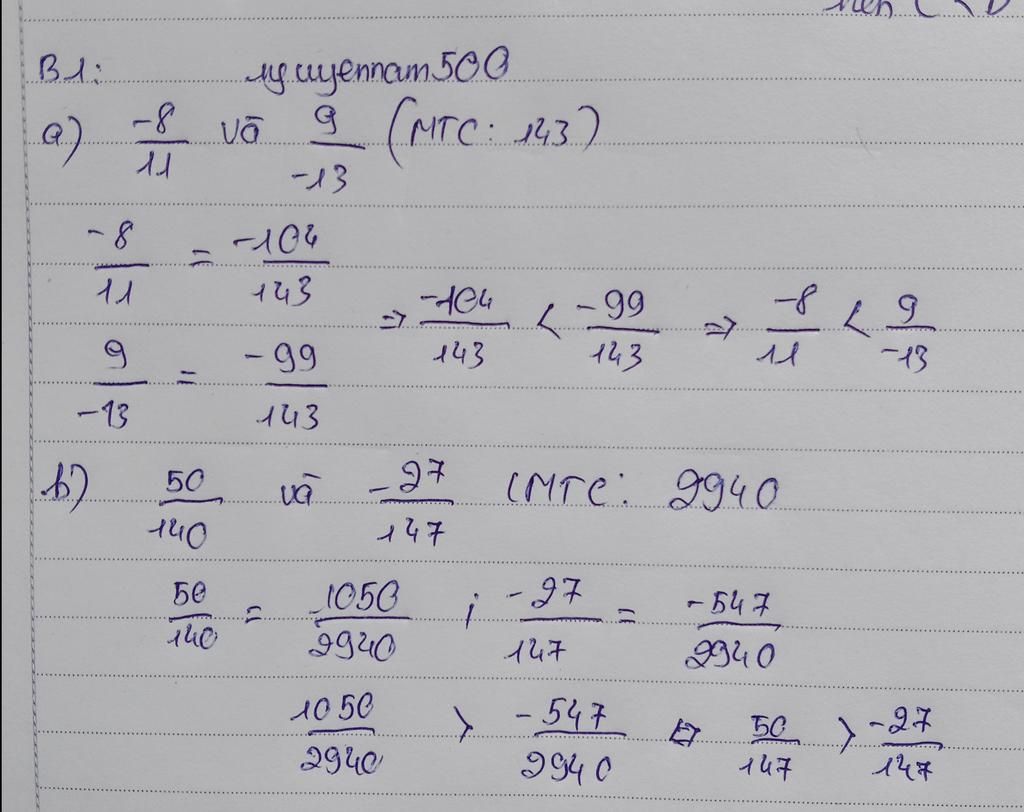 nên C < D
B1: лущуеnnam500
a) -8/11 và 9/-13 (MTC: 143)
-8/11 = -104/143
9/-13 = -99/143
=> -104/143 < -99/143 => -8/11 < 9/-13
b) 50/140 và -27/147 (MTC: 2940
50/140 = 1050/2940 ; -27/147 = -547/2940
1050/2940 > -547/2940 ⇔ 50/147 > -27/147